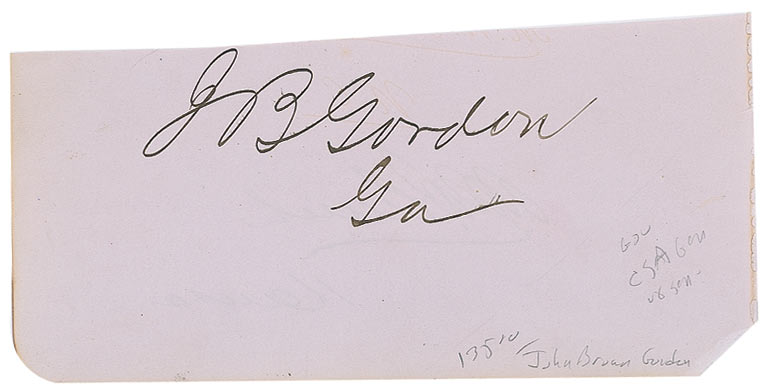 J B Gordon
Ga
Gov
CSA Gen
US Sen-
135⁰⁰
John Brown Gordon